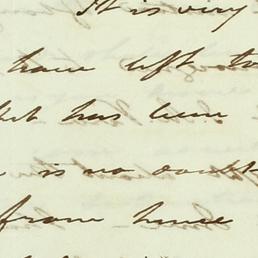 It is very
have left to
has been
is no doubt
from hence